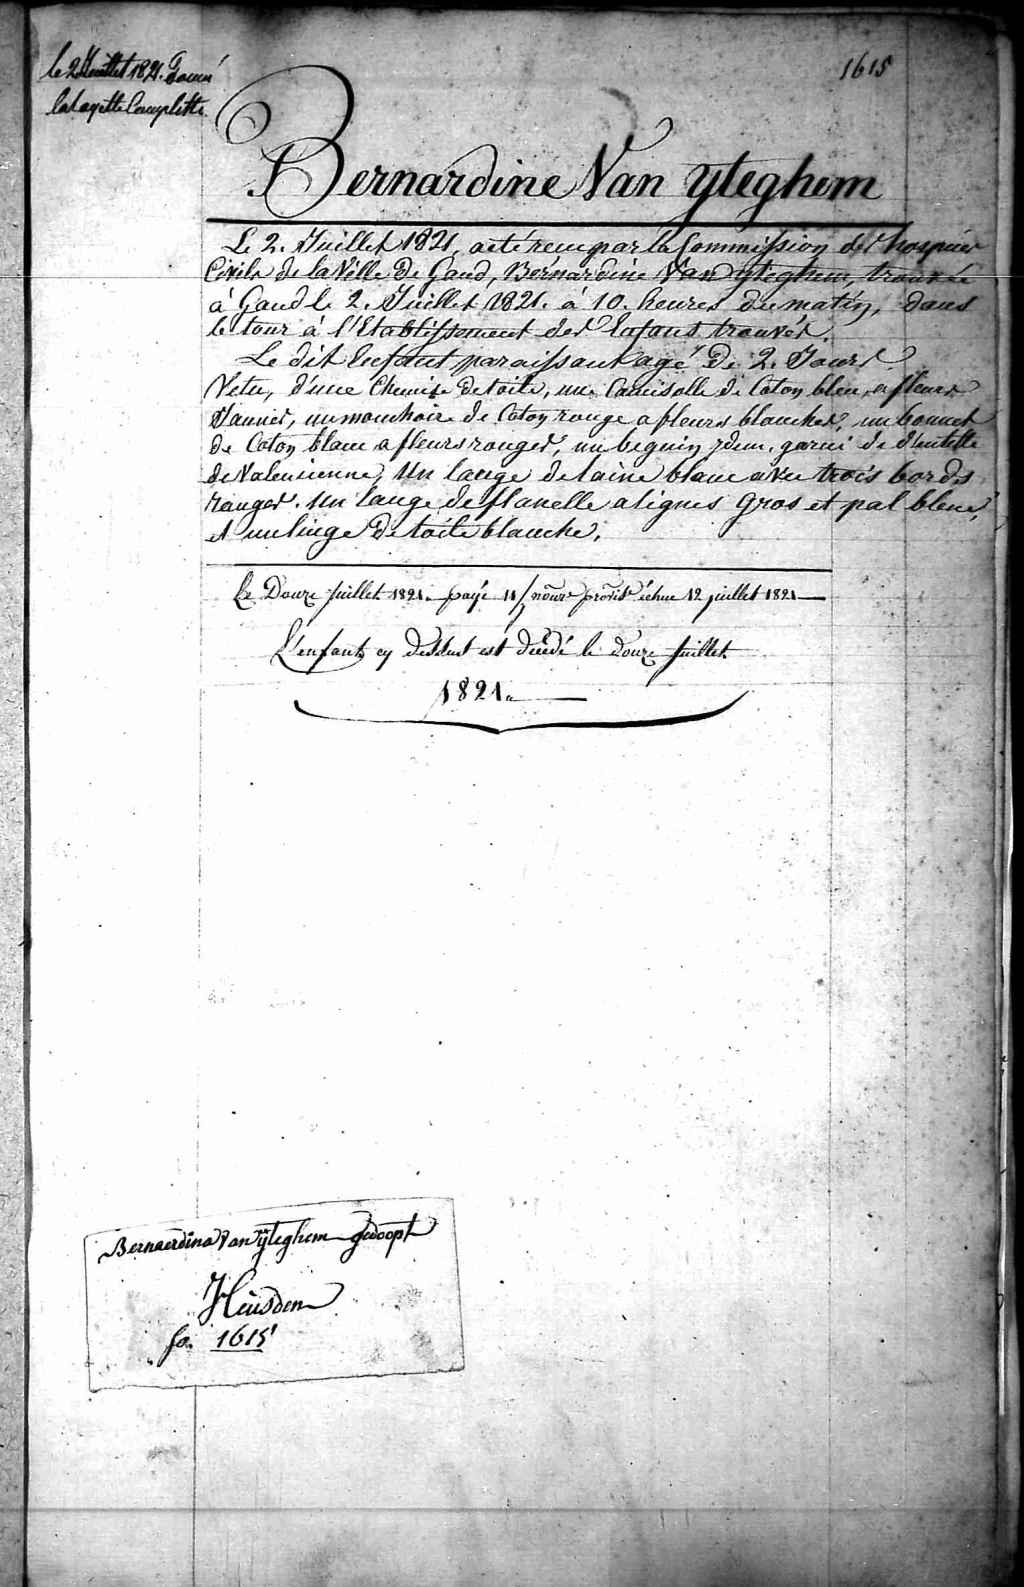 le 2 Juillet 1821. Donné
la Layette Complette.
1615
Bernardine Van yteghem
Le 2. Juillet 1821, a été recu par la Commission des hospices
Civils de la Ville De Gand, Bernardine Van yteghem, trouvée
à Gand le 2. Juillet 1821. à 10. heures du matin, dans
le tour à l'Etablissement des Enfans trouvés.
Le dit Enfant paraissant agé De 2. Jours
Vetu, d'une Chemise De toile, une Camisolle de Coton bleu, a fleurs
Jaunes, un mouchoir de Coton rouge a fleurs blanches, un bonnet
de Coton blanc a fleurs rouges, un beguin idem, garni de dentelle
de Valencienne, Un lange de laine blanc avec trois bords
rouges. Un lange de flanelle a lignes gros et pal bleue,
et un linge De toile blanche.
Le Douze Juillet 1821. payé 11/ échue 12 juillet 1821
L'enfant cy dessus est décédé le douze Juillet
1821.
Bernaerdina Van ÿteghem gedoopt
Heusden
fo. 1615